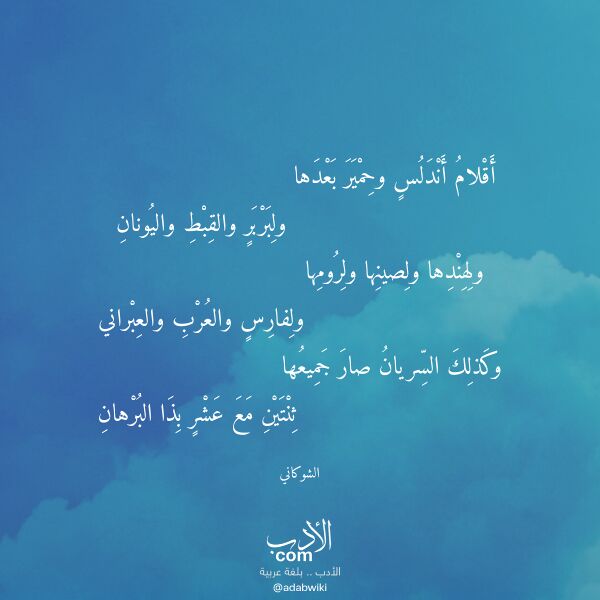 أَقْلامُ أَنْدَلُسٍ وحِمْيَرَ بَعْدَها
ولِبَرْبَرٍ والقِبْطِ واليُونانِ
ولِهِنْدِها ولِصينِها ولِرُومِها
ولِفارِسٍ والعُرْبِ والعِبْراني
وكَذلِكَ السِّريانُ صارَ جَمِيعُها
ثِنْتَيْنِ مَعَ عَشْرٍ بِذَا البُرْهانِ
الشوكاني
الأدب
com
الأدب .. بلغة عربية
@adabwiki